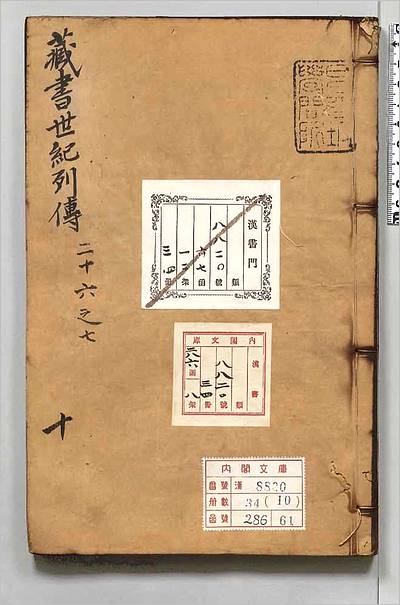 藏書世紀列傳
二十六之七
十
漢書門
類
八八二〇號
六七函
一二架
三四冊
內閣文庫
漢書
類
八八二〇號
三四冊
二八六函
八架
内閣文庫
番號 漢 8820
冊數 34 (10)
函號 286 61